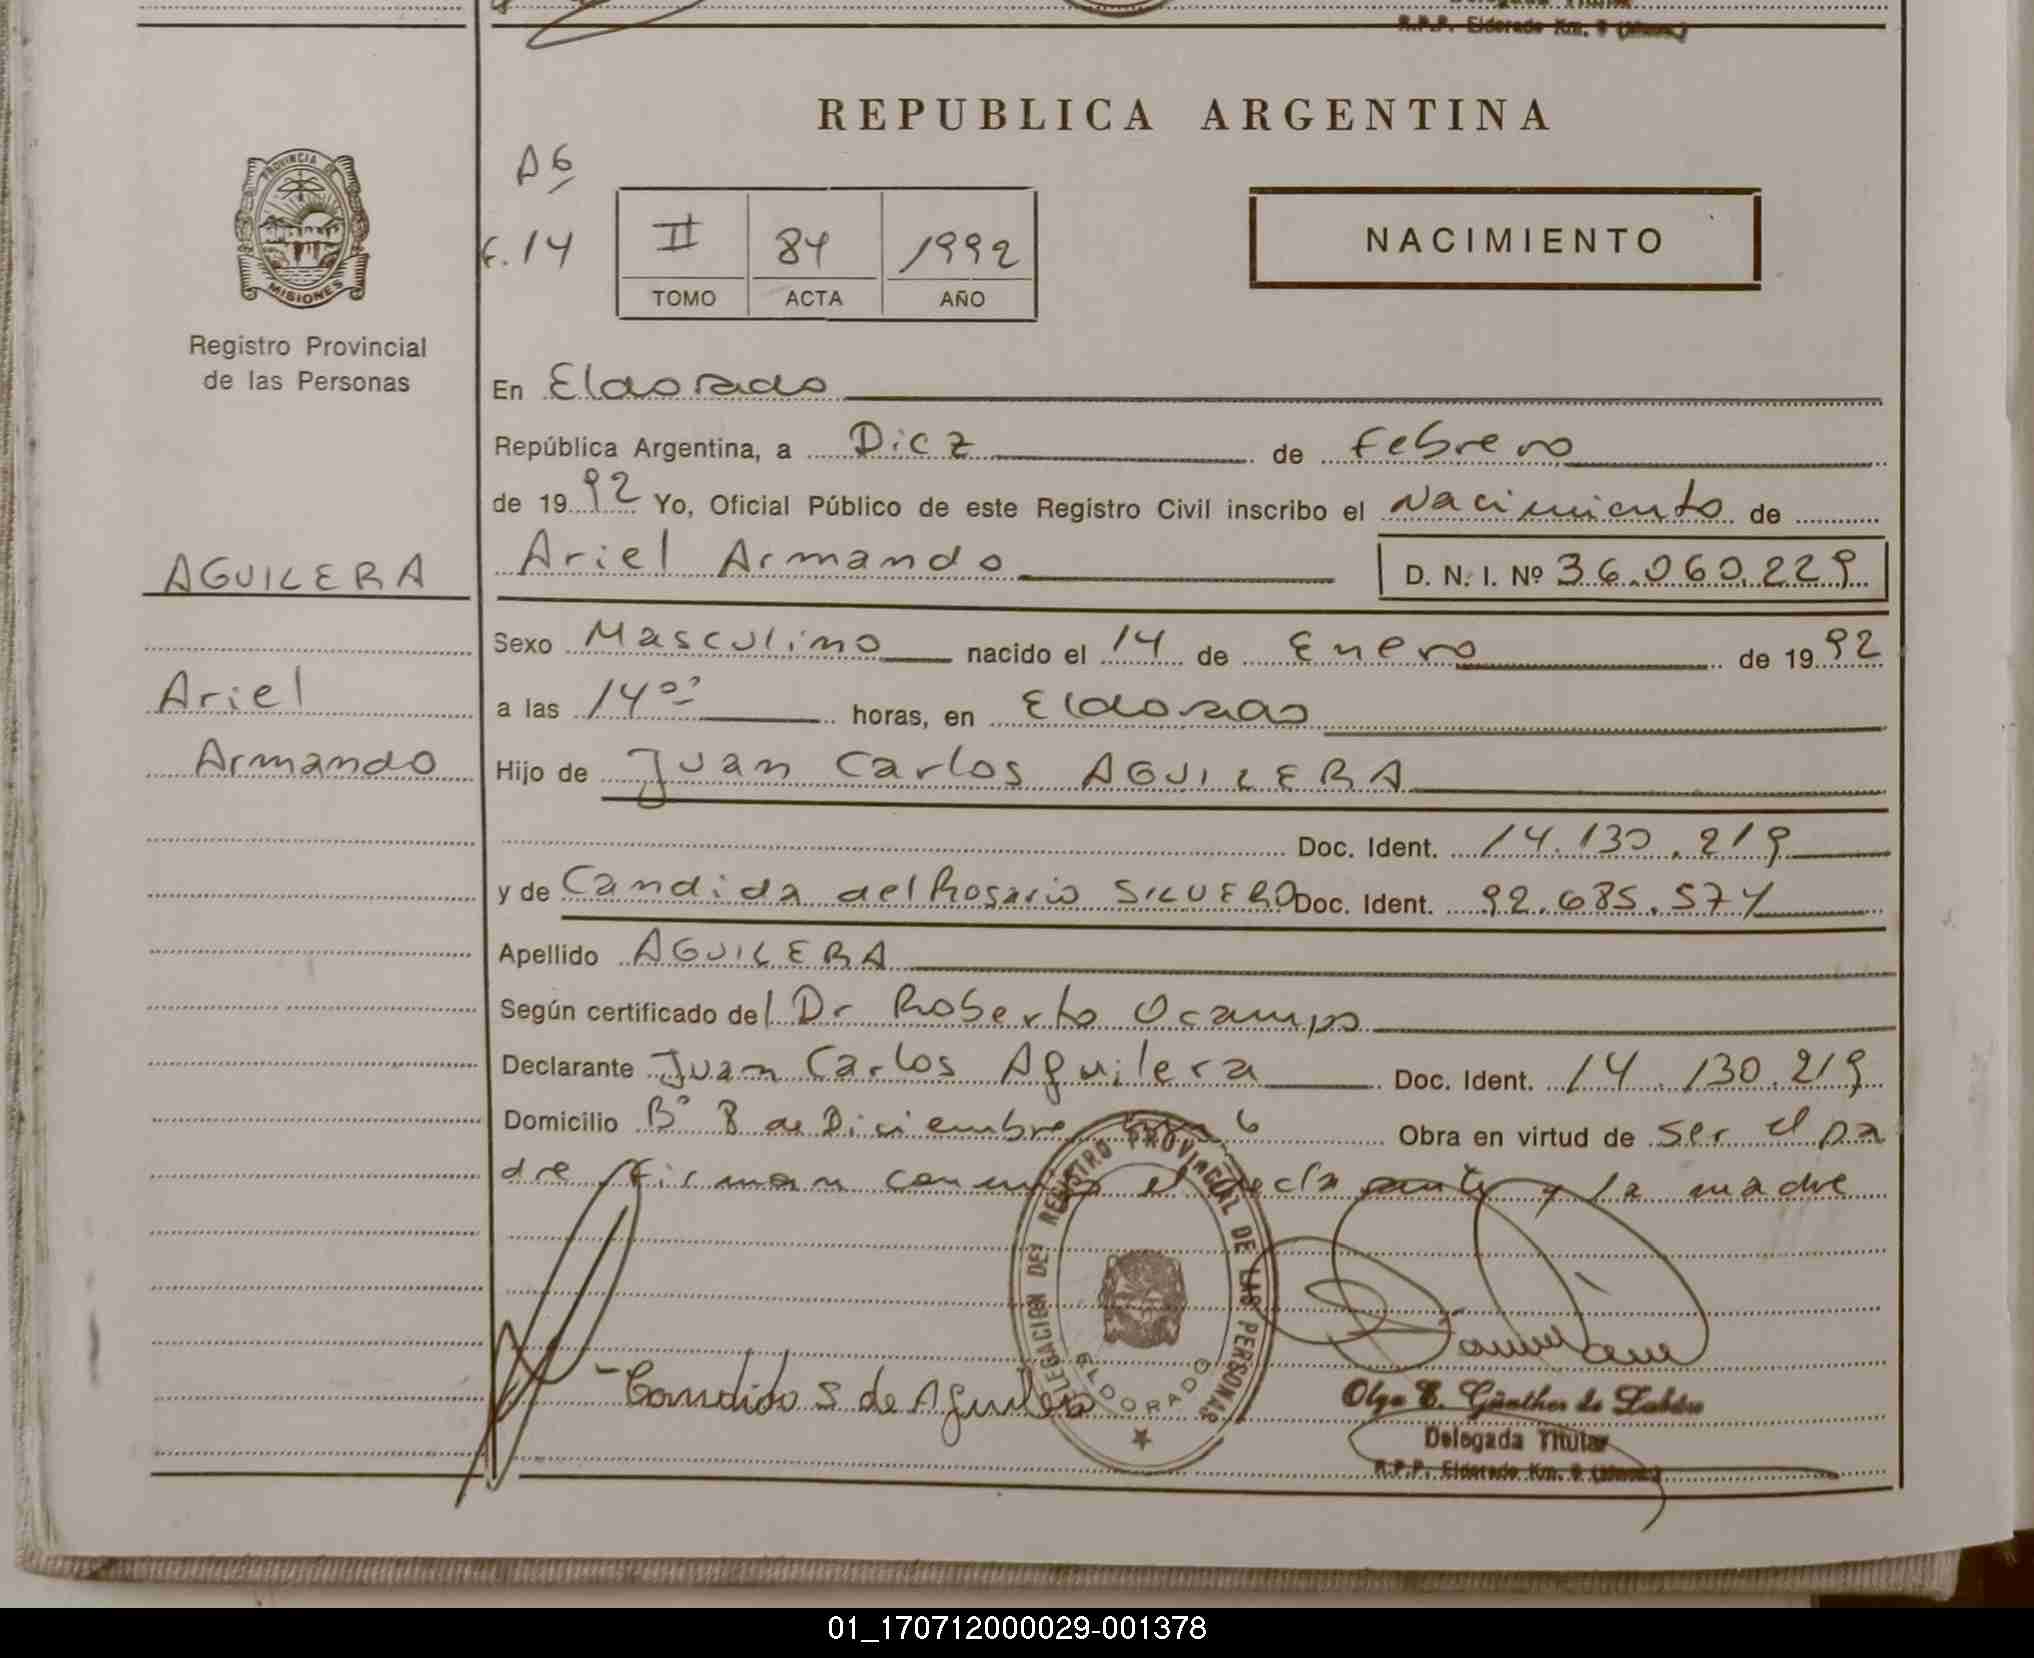 R.P.P. Eldorado Km. 9
REPUBLICA ARGENTINA
PROVINCIA DE
MISIONES
Registro Provincial
de las Personas
A6
F.14
II 84 1992
TOMO ACTA AÑO
NACIMIENTO
En Eldorado
República Argentina, a Diez de Febrero
de 1992 Yo, Oficial Público de este Registro Civil inscribo el Nacimiento de
AGUILERA
Ariel Armando D. N. I. Nº 36.060.229
Sexo Masculino nacido el 14 de Enero de 1992
Ariel
a las 14 00 horas, en Eldorado
Armando
Hijo de Juan Carlos AGUILERA
Doc. Ident. 14.130.219
y de Candida del Rosario SILVERO Doc. Ident. 92.685.574
Apellido AGUILERA
Según certificado del Dr Roberto Ocampo
Declarante Juan Carlos Aguilera Doc. Ident. 14.130.219
Domicilio Bº 8 de Diciembre 6 Obra en virtud de ser el pa
dre firman conmigo el declarante y la madre
DELEGACION DEL REGISTRO PROVINCIAL DE LAS PERSONAS
ELDORADO
Candida S de Aguilera
Olga E. Günther de
Delegada Titular
R.P.P. Eldorado Km. 9
01_170712000029-001378